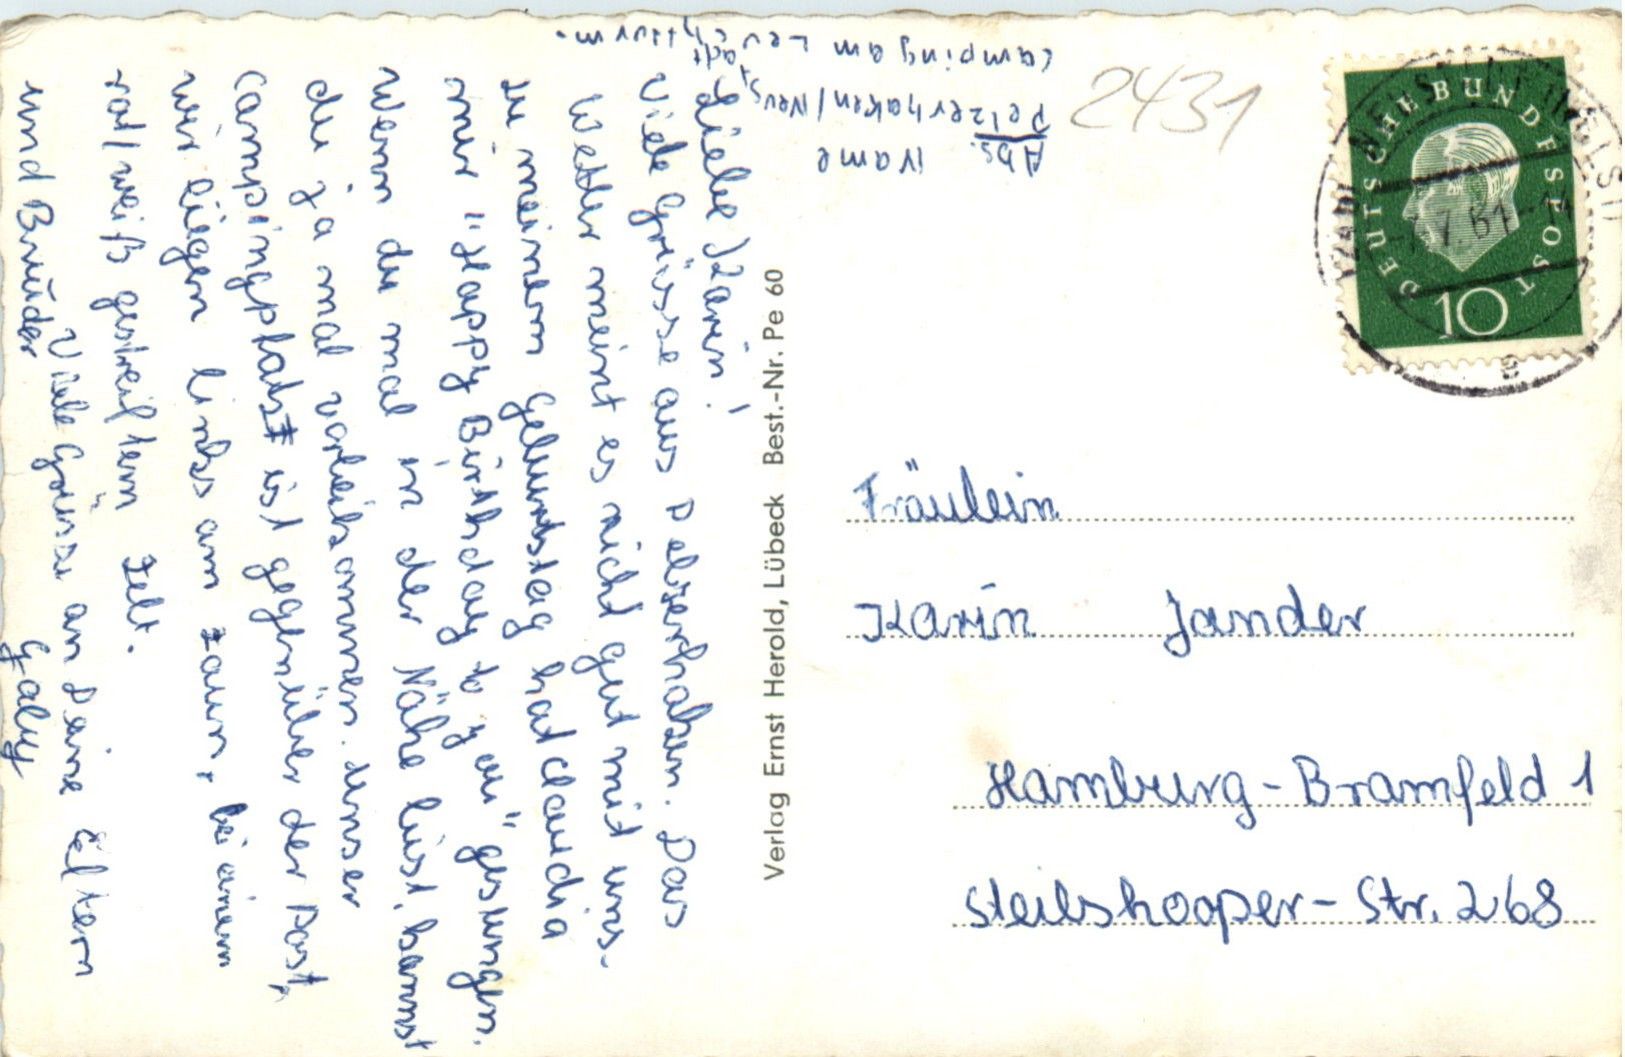 Abs. Name
Pelzerhaken/Neustadt
Camping am Leuchtturm.
Liebe Karin!
Viele Grüsse aus Pelzerhaken. Das
Wetter meint es nicht gut mit uns.
Zu meinem Geburtstag hat Claudia
mir "Happy Birthsday to you" gesungen.
Wenn du mal in der Nähe bist, kannst
du ja mal vorbeikommen. Unser
Campingplatz ist gegenüber der Post,
wir liegen links am Zaun, bei einem
rot/weiß gestreiftem Zelt.
Viele Grüsse an Deine Eltern
und Bruder
Gaby
Verlag Ernst Herold, Lübeck Best.-Nr. Pe 60
2431
DEUTSCHE BUNDESPOST
10
7.61
Fräulein
Karin Jander
Hamburg-Bramfeld 1
Steilshooper-Str. 268